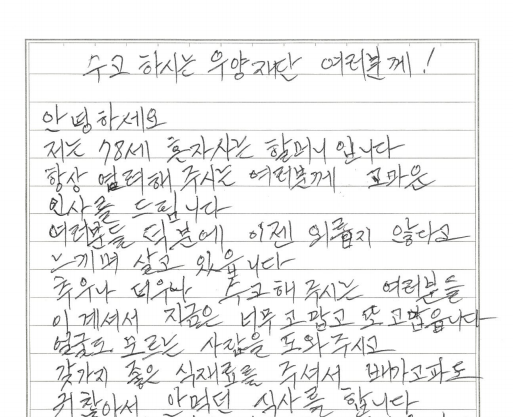 수고 하시는 우양재단 여러분께!
안녕하세요
저는 78세 혼자사는 할머니 입니다
항상 염려해 주시는 여러분께 고마운
인사를 드립니다
여러분들 덕분에 이젠 외롭지 않다고
느끼며 살고 있읍니다
추우나 더우나 수고해 주시는 여러분들
이 계셔서 지금은 너무 고맙고 또 고맙읍니다
얼굴도 모르는 사람을 도와주시고
갖가지 좋은 식재료를 주셔서 배가고파도
귀찮아서 안먹던 식사를 합니다